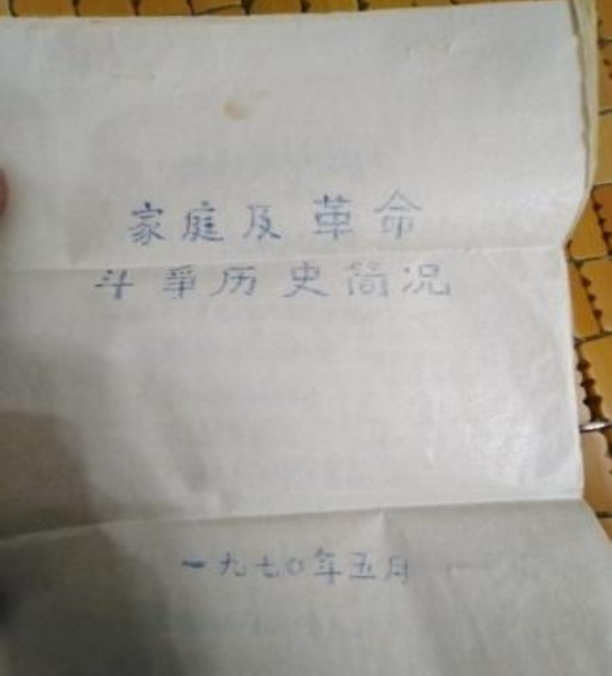 家庭及革命
斗争历史简况
一九七〇年五月